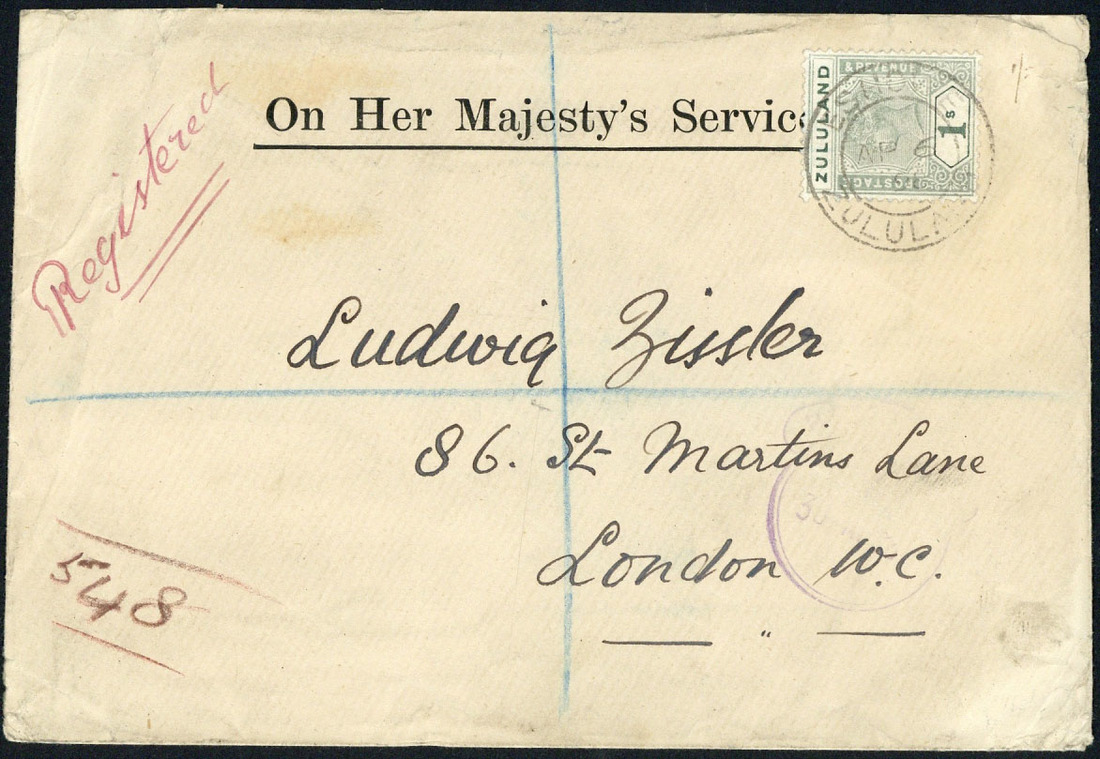 Registered
On Her Majesty's Servic
ZULULAND
& REVENUE
1s
POSTAG
AP 6
ZULULA
Ludwig Zissler
86. St Martins Lane
London W.C.
"
548
30